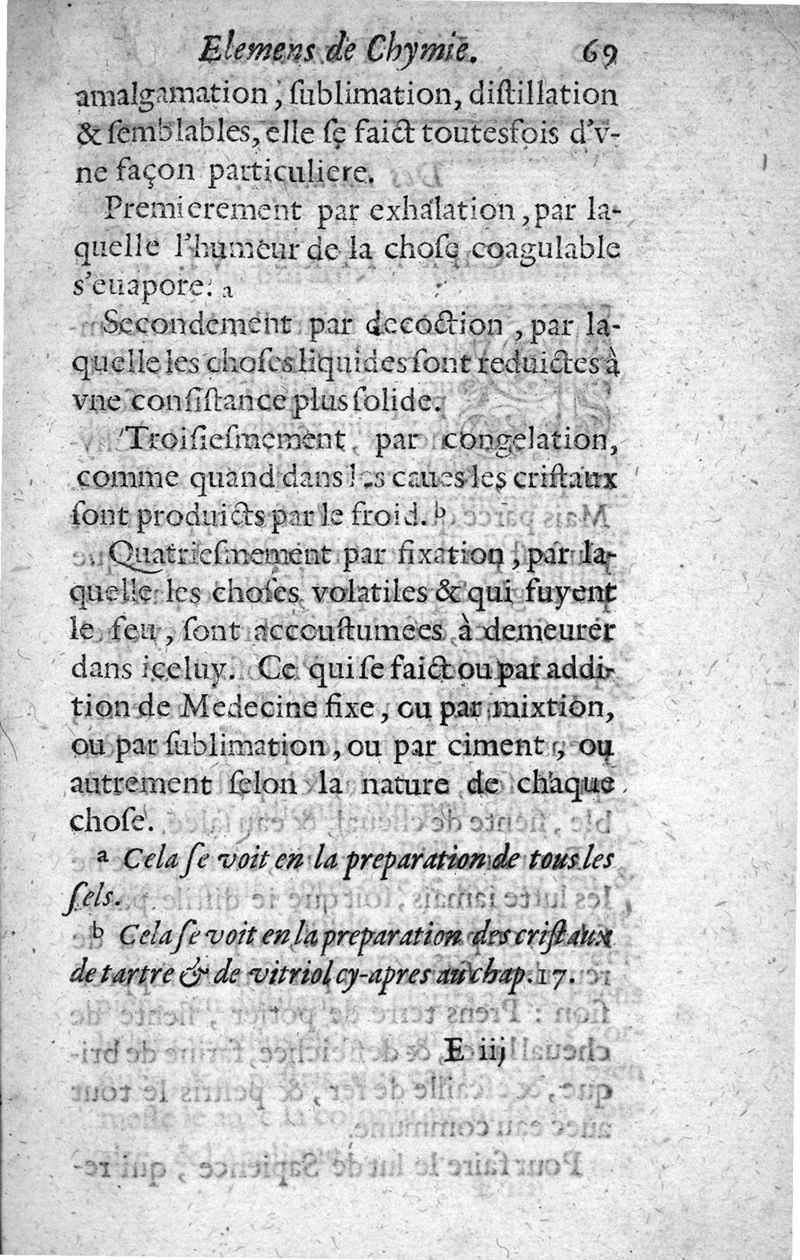 Elemens de Chymie. 69
amalgamation, ſublimation, diſtillation
& ſemblables, elle ſe faict toutesfois d'v-
ne façon particuliere.
Premierement par exhalation, par la-
quelle l'humeur de la choſe coagulable
s'euapore. a
Secondement par decoction, par la-
quelle les choſes liquides ſont reduictes à
vne conſiſtance plus ſolide.
Troiſieſmement par congelation,
comme quand dans les caues les criſtaux
ſont produicts par le froid. b
Quatrieſmement par fixation, par la-
quelle les choſes volatiles & qui fuyent
le feu, ſont accouſtumees à demeurer
dans iceluy. Ce qui ſe faict ou par addi-
tion de Medecine fixe, ou par mixtion,
ou par ſublimation, ou par ciment, ou
autrement ſelon la nature de chaque
choſe.
a Cela ſe voit en la preparation de tous les
ſels.
b Cela ſe voit en la preparation des criſtaux
de tartre & de vitriol cy-apres au chap. 17.
E iij